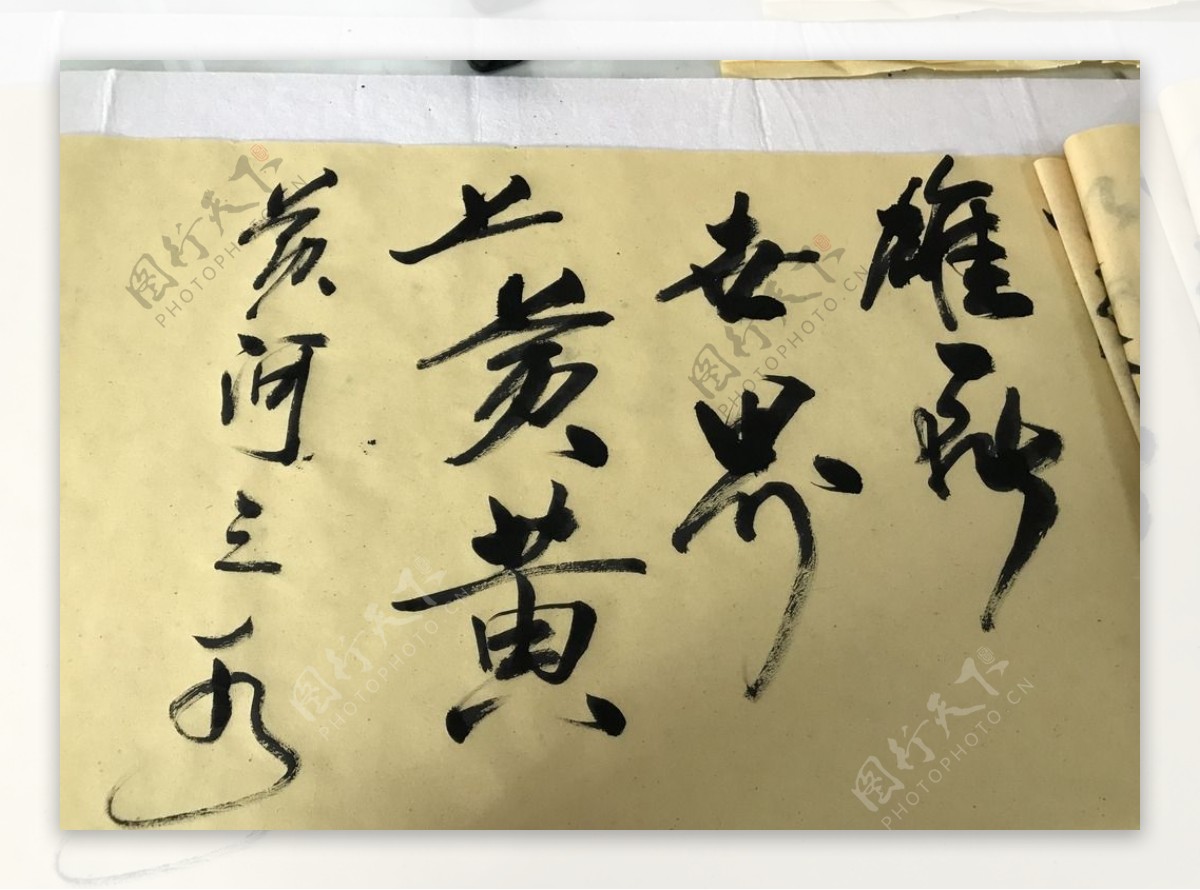 雄
世界
上黄黄
黄河三
图行天下
PHOTOPHOTO.CN
图行天下
PHOTOPHOTO.CN
图行天下
PHOTOPHOTO.CN
图行天下
PHOTOPHOTO.CN